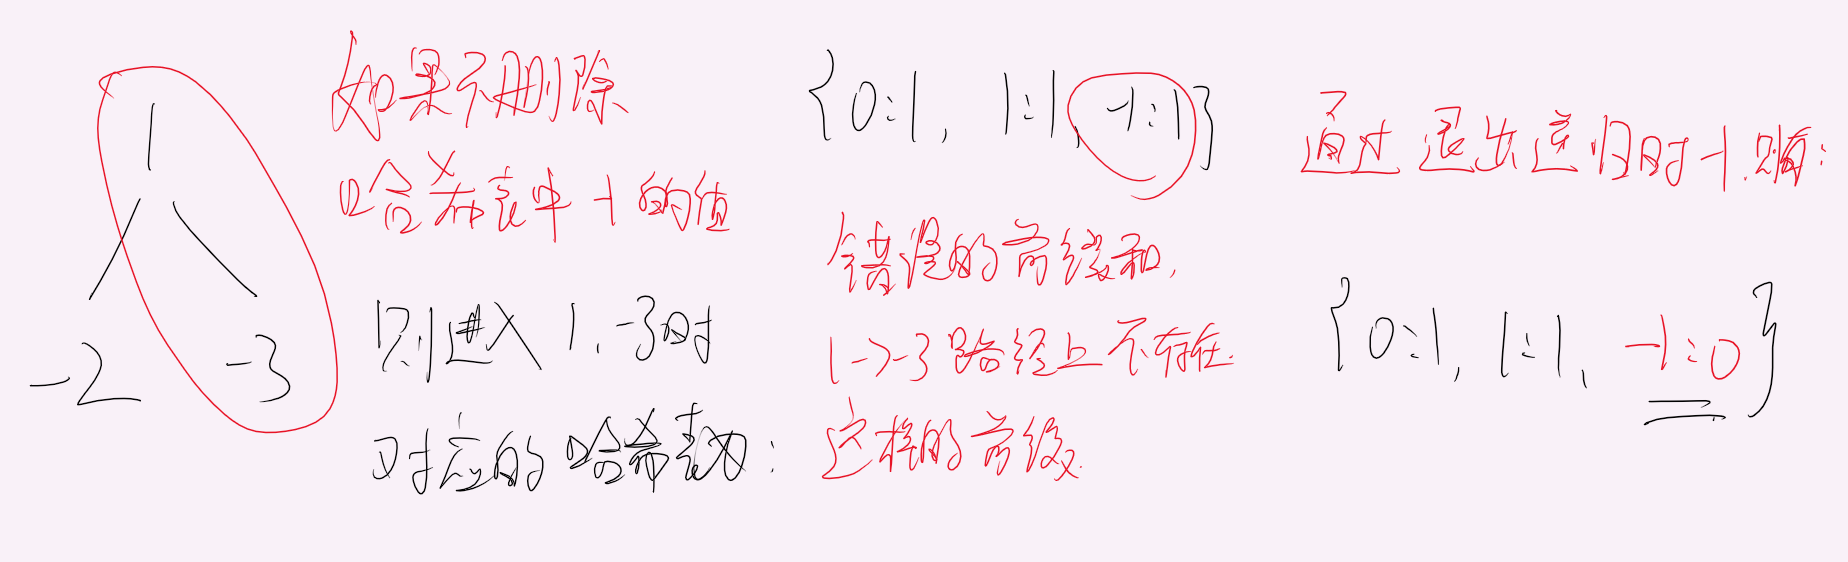 1
-2
-3
如果不删除
哈希表中 -1 的值
则进入 1、-3时
对应的哈希表为:
{0:1, 1:1, -1:1}
错误的前缀和,
1->-3 路径上不存在
这样的前缀.
通过退出递归时-1,则有:
{0:1, 1:1, -1:0}